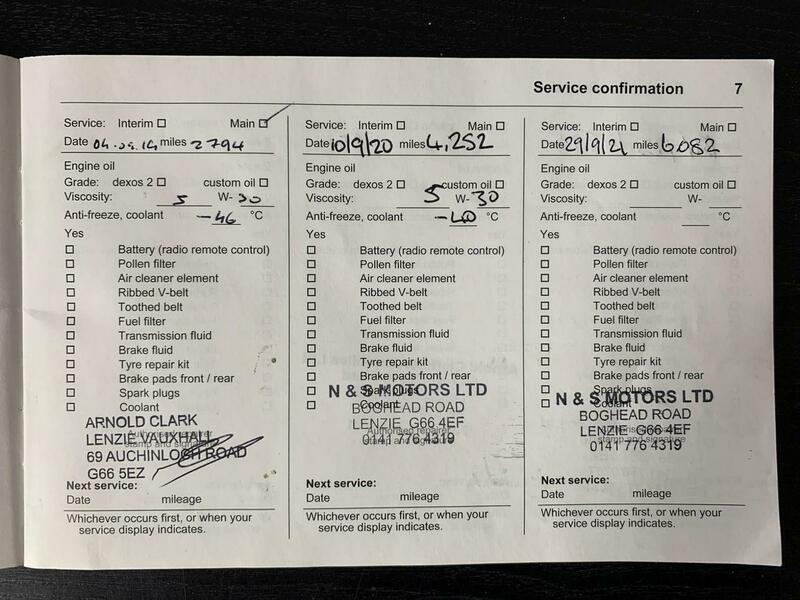 Service confirmation 7
Service: Interim Main
Date 04.09.19 miles 2794
Engine oil
Grade: dexos 2 custom oil
Viscosity: 5 W- 30
Anti-freeze, coolant -46 °C
Yes
Battery (radio remote control)
Pollen filter
Air cleaner element
Ribbed V-belt
Toothed belt
Fuel filter
Transmission fluid
Brake fluid
Tyre repair kit
Brake pads front / rear
Spark plugs
Coolant
ARNOLD CLARK
LENZIE VAUXHALL
69 AUCHINLOCH ROAD
G66 5EZ
Authorised repairer
stamp and signature
Next service:
Date mileage
Whichever occurs first, or when your
service display indicates.
Service: Interim Main
Date 10/9/20 miles 4,252
Engine oil
Grade: dexos 2 custom oil
Viscosity: 5 W- 30
Anti-freeze, coolant -40 °C
Yes
Battery (radio remote control)
Pollen filter
Air cleaner element
Ribbed V-belt
Toothed belt
Fuel filter
Transmission fluid
Brake fluid
Tyre repair kit
Brake pads front / rear
Spark plugs
Coolant
N & S MOTORS LTD
BOGHEAD ROAD
LENZIE G66 4EF
0141 776 4319
Authorised repairer
stamp and signature
Next service:
Date mileage
Whichever occurs first, or when your
service display indicates.
Service: Interim Main
Date 29/9/21 miles 6082
Engine oil
Grade: dexos 2 custom oil
Viscosity: W-
Anti-freeze, coolant °C
Yes
Battery (radio remote control)
Pollen filter
Air cleaner element
Ribbed V-belt
Toothed belt
Fuel filter
Transmission fluid
Brake fluid
Tyre repair kit
Brake pads front / rear
Spark plugs
Coolant
N & S MOTORS LTD
BOGHEAD ROAD
LENZIE G66 4EF
0141 776 4319
Authorised repairer
stamp and signature
Next service:
Date mileage
Whichever occurs first, or when your
service display indicates.